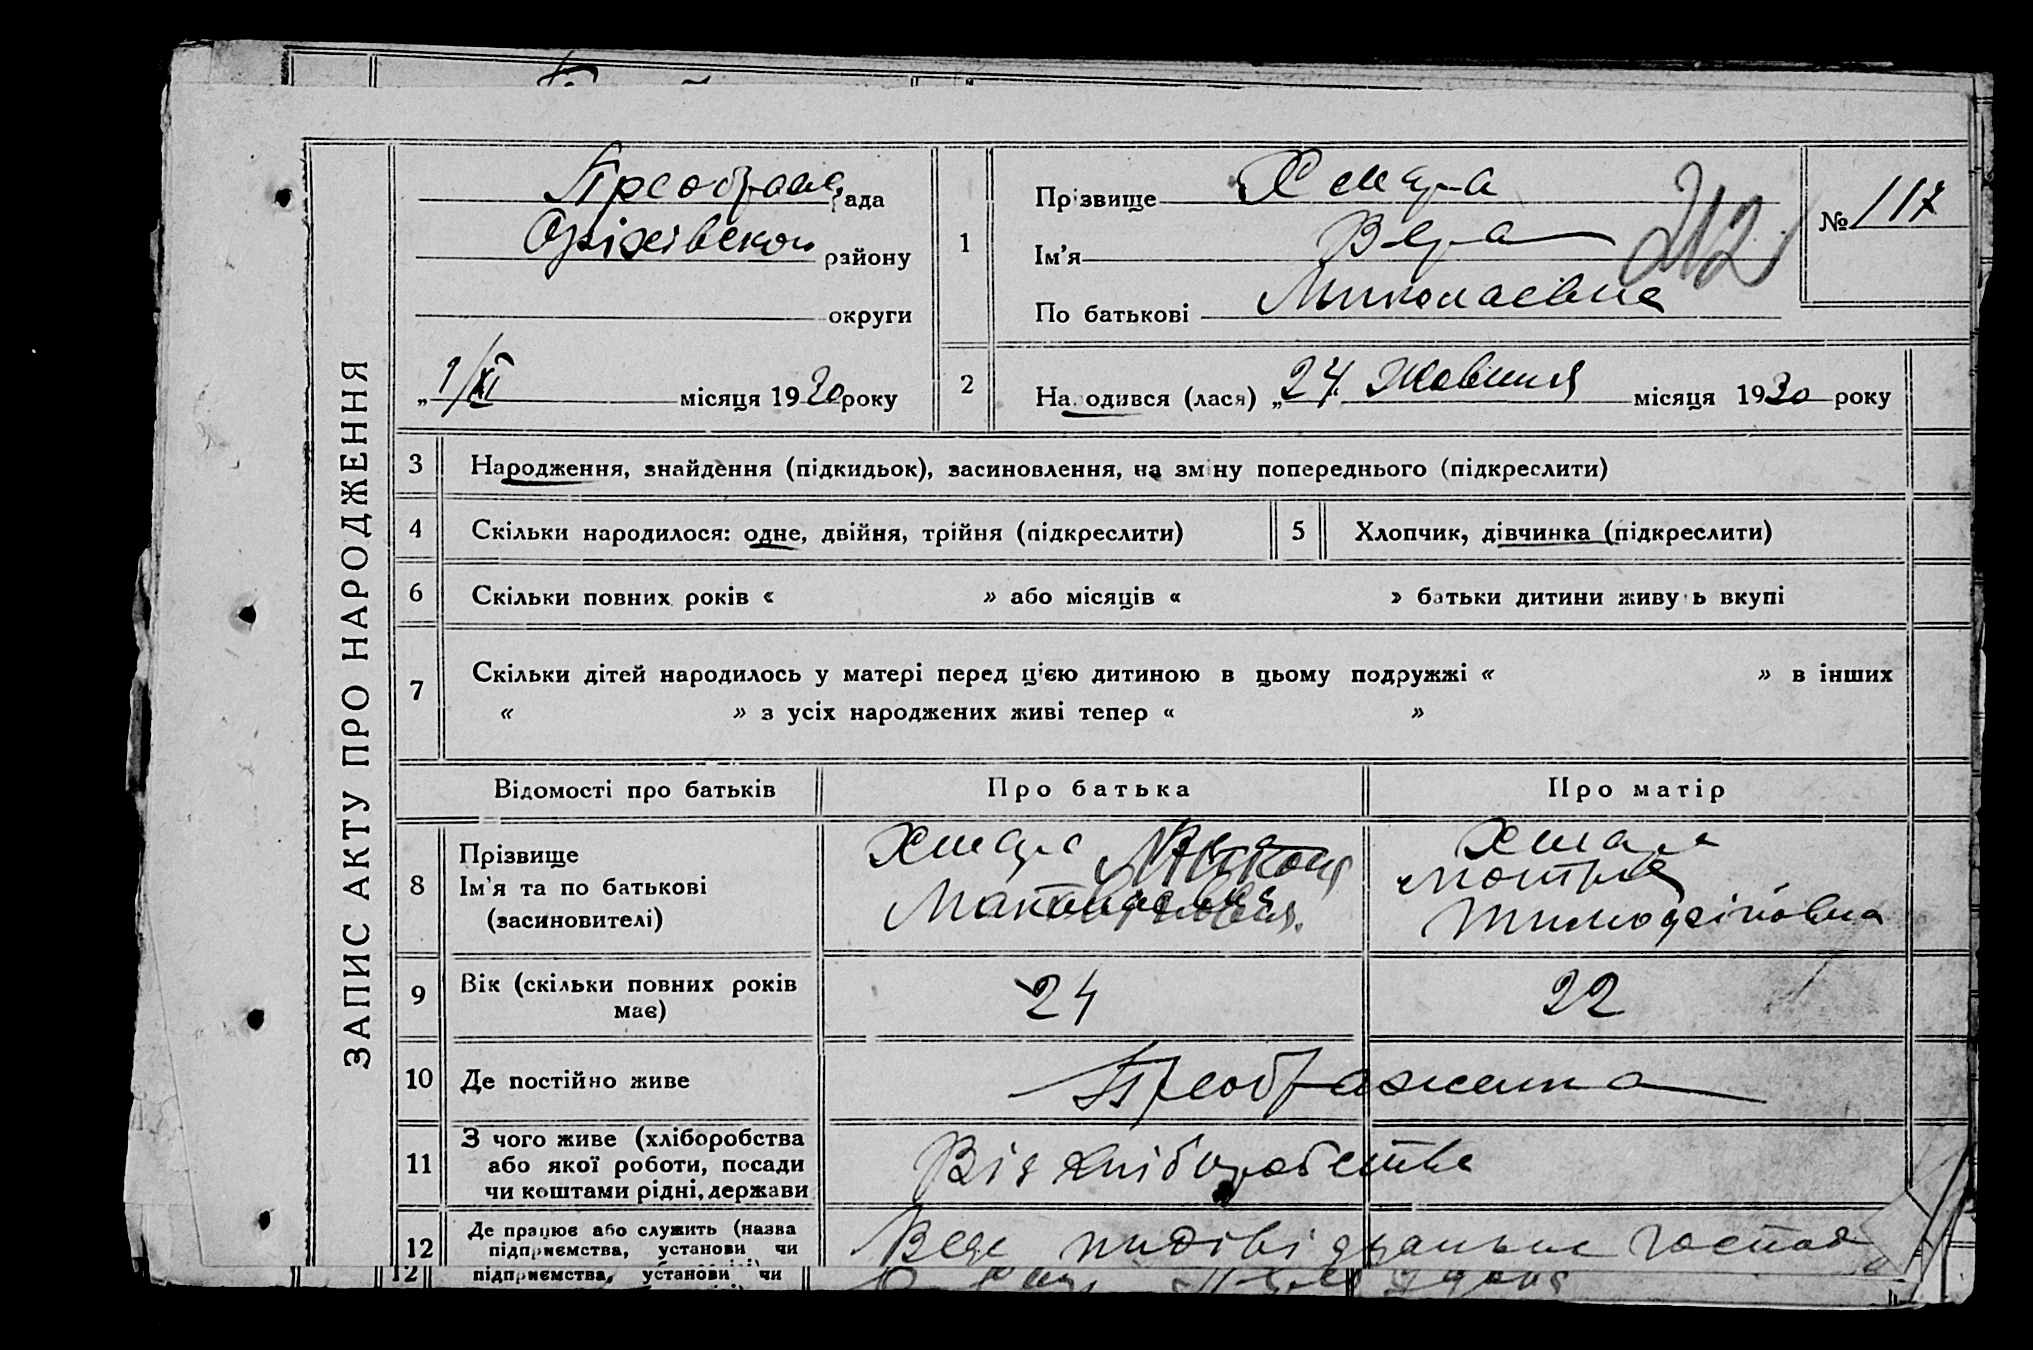 ЗАПИС АКТУ ПРО НАРОДЖЕННЯ
Преображ. рада
Оріхівского району
округи
„ 1/XI місяця 1930 року
1
Прізвище Хмара
Ім'я Вера
По батькові Миколаевна
212
№ 117
2
Народився (лася) „ 24 Жовтня місяця 1930 року
3 Народження, знайдення (підкидьок), засиновлення, на зміну попереднього (підкреслити)
4 Скільки народилося: одне, двійня, трійня (підкреслити)
5 Хлопчик, дівчинка (підкреслити)
6 Скільки повних років « » або місяців « » батьки дитини живуть вкупі
7 Скільки дітей народилось у матері перед цією дитиною в цьому подружжі « » в інших
« » з усіх народжених живі тепер « »
Відомості про батьків
Про батька
Про матір
8 Прізвище
Ім'я та по батькові
(засиновителі)
Хмара
Хмара
Мотря
Тимофіївна
9 Вік (скільки повних років
має)
24
22
10 Де постійно живе
Преображенка
11 З чого живе (хліборобства
або якої роботи, посади
чи коштами рідні, держави
Від хліборобства
12 Де працює або служить (назва
підприємства, установи чи
Веде індівідуальне господ
12 підприємства, установи чи